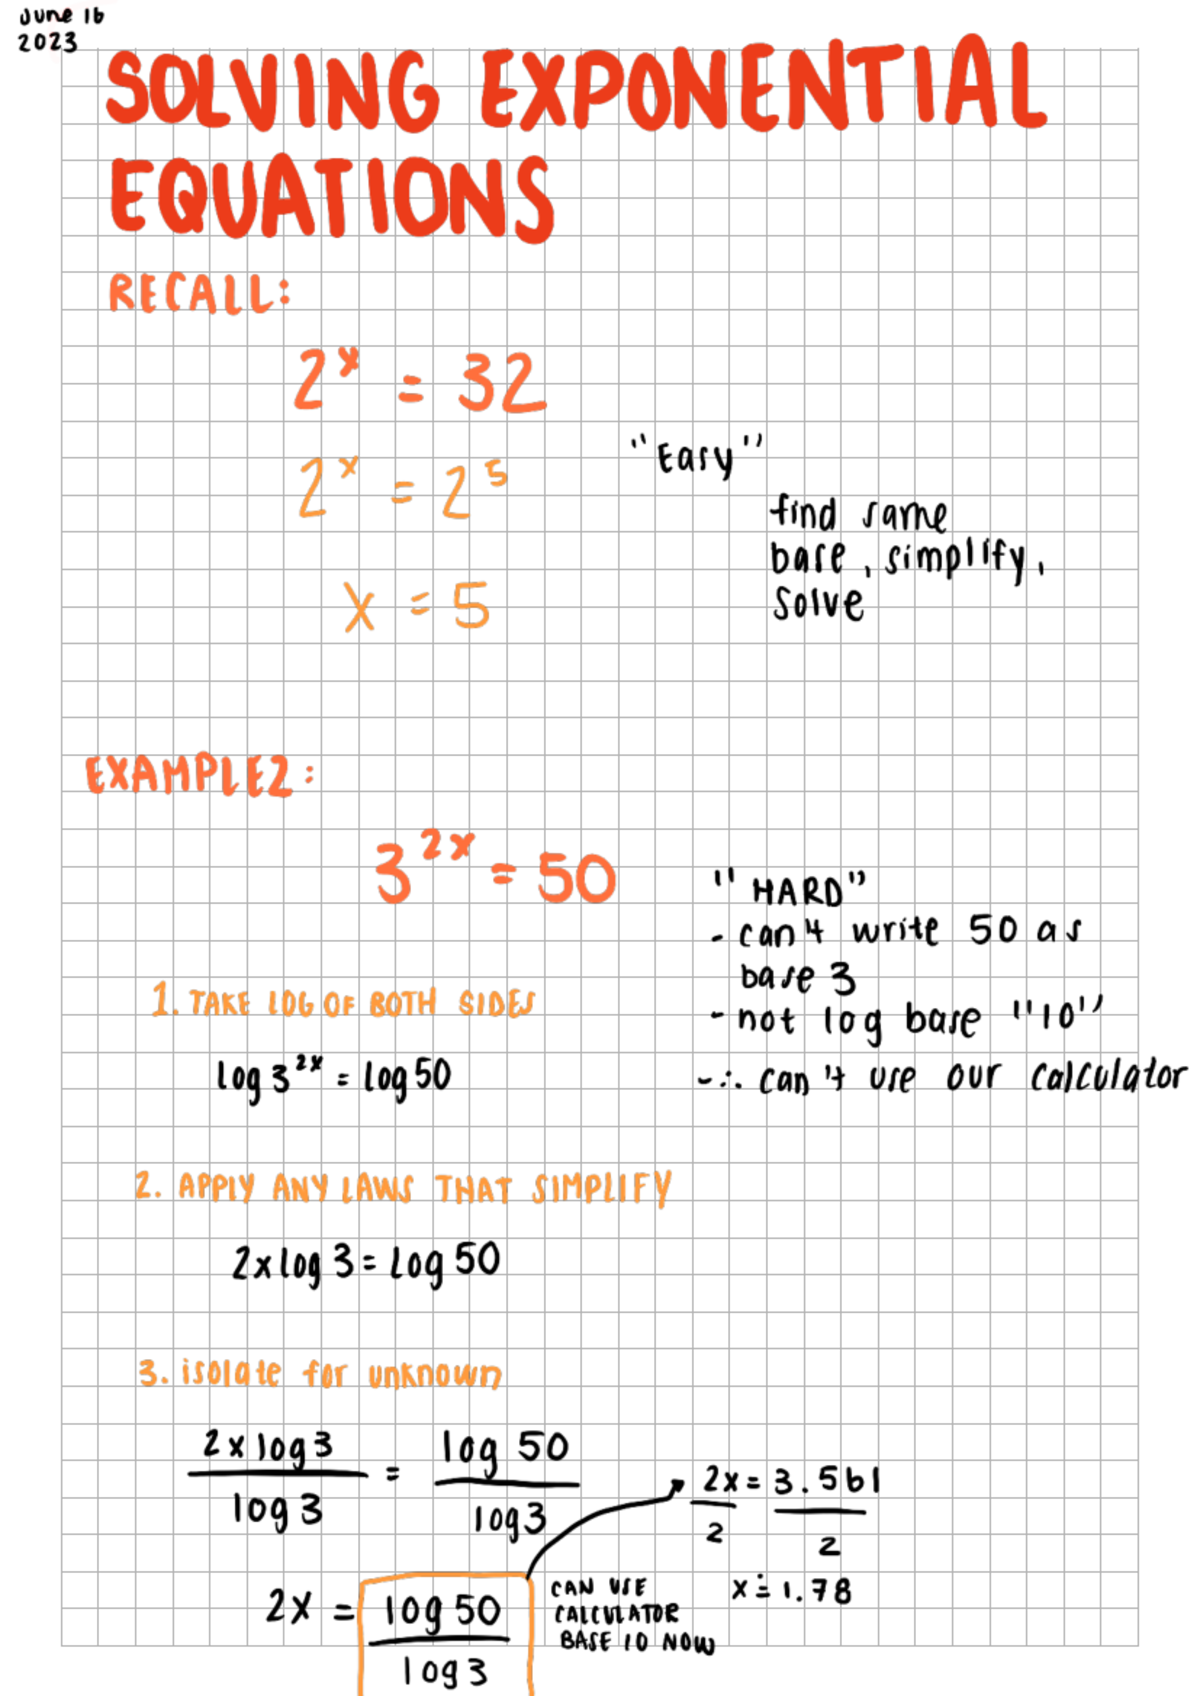 June 16
2023
SOLVING EXPONENTIAL
EQUATIONS
RECALL:
2^x = 32
2^x = 2^5
x = 5
"Easy"
find same
base, simplify,
solve
EXAMPLE 2:
3^2x = 50
"HARD"
- can't write 50 as
base 3
- not log base "10"
- ∴ can't use our calculator
1. TAKE LOG OF BOTH SIDES
log 3^2x = log 50
2. APPLY ANY LAWS THAT SIMPLIFY
2x log 3 = log 50
3. isolate for unknown
2x log 3 / log 3 = log 50 / log 3
2x = log 50 / log 3
CAN USE
CALCULATOR
BASE 10 NOW
2x / 2 = 3.561 / 2
x ≐ 1.78